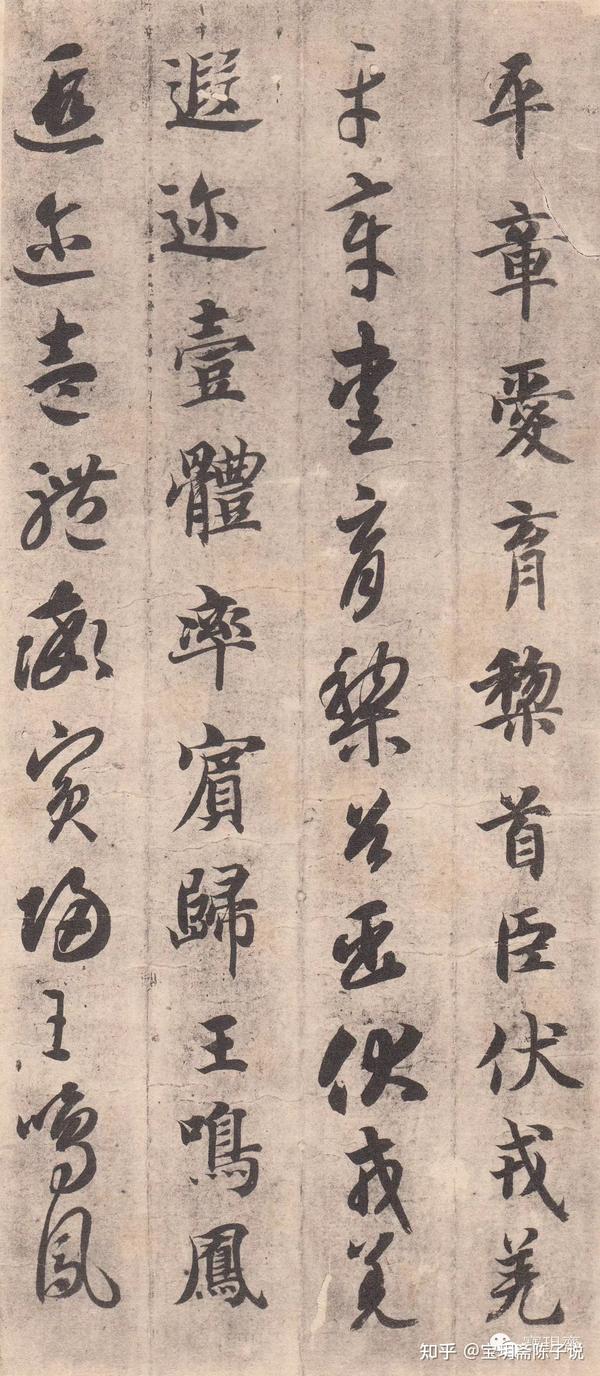 平章愛育黎首臣伏戎羌
平章愛育黎首臣伏戎羌
遐迩壹體率賓歸王鳴鳳
遐迩壹體率賓歸王鳴鳳
知乎 @宝玥斋陈子说